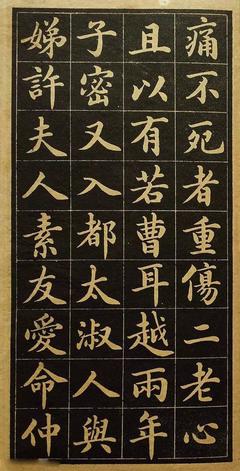 痛不死者重傷二老心
且以有若曹耳越兩年
子密又入都太淑人與
娣許夫人素友愛命仲